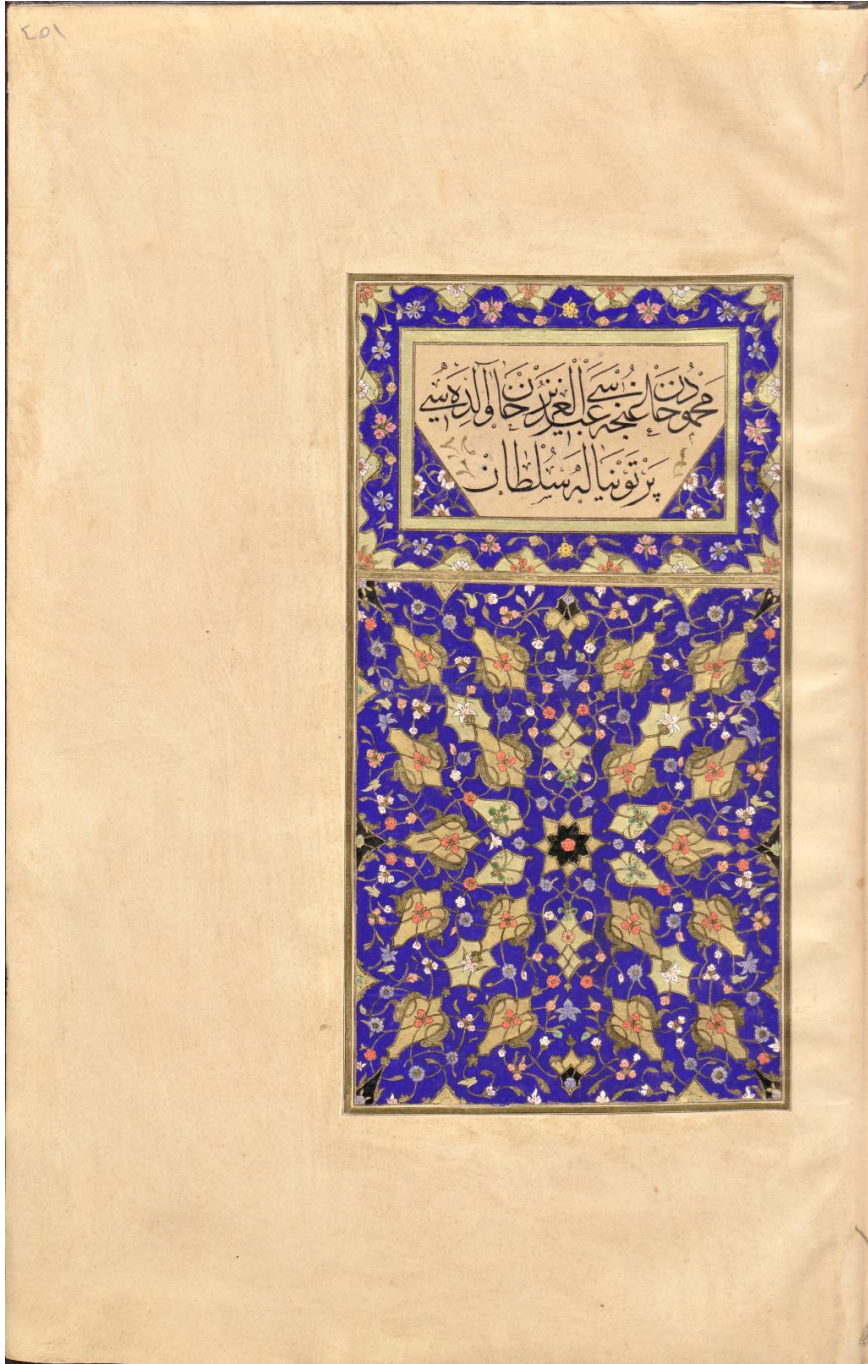 ٤٥١
محمود خان غنجه سی عبد العزیز خان والده سی
پرتونیاله سلطان